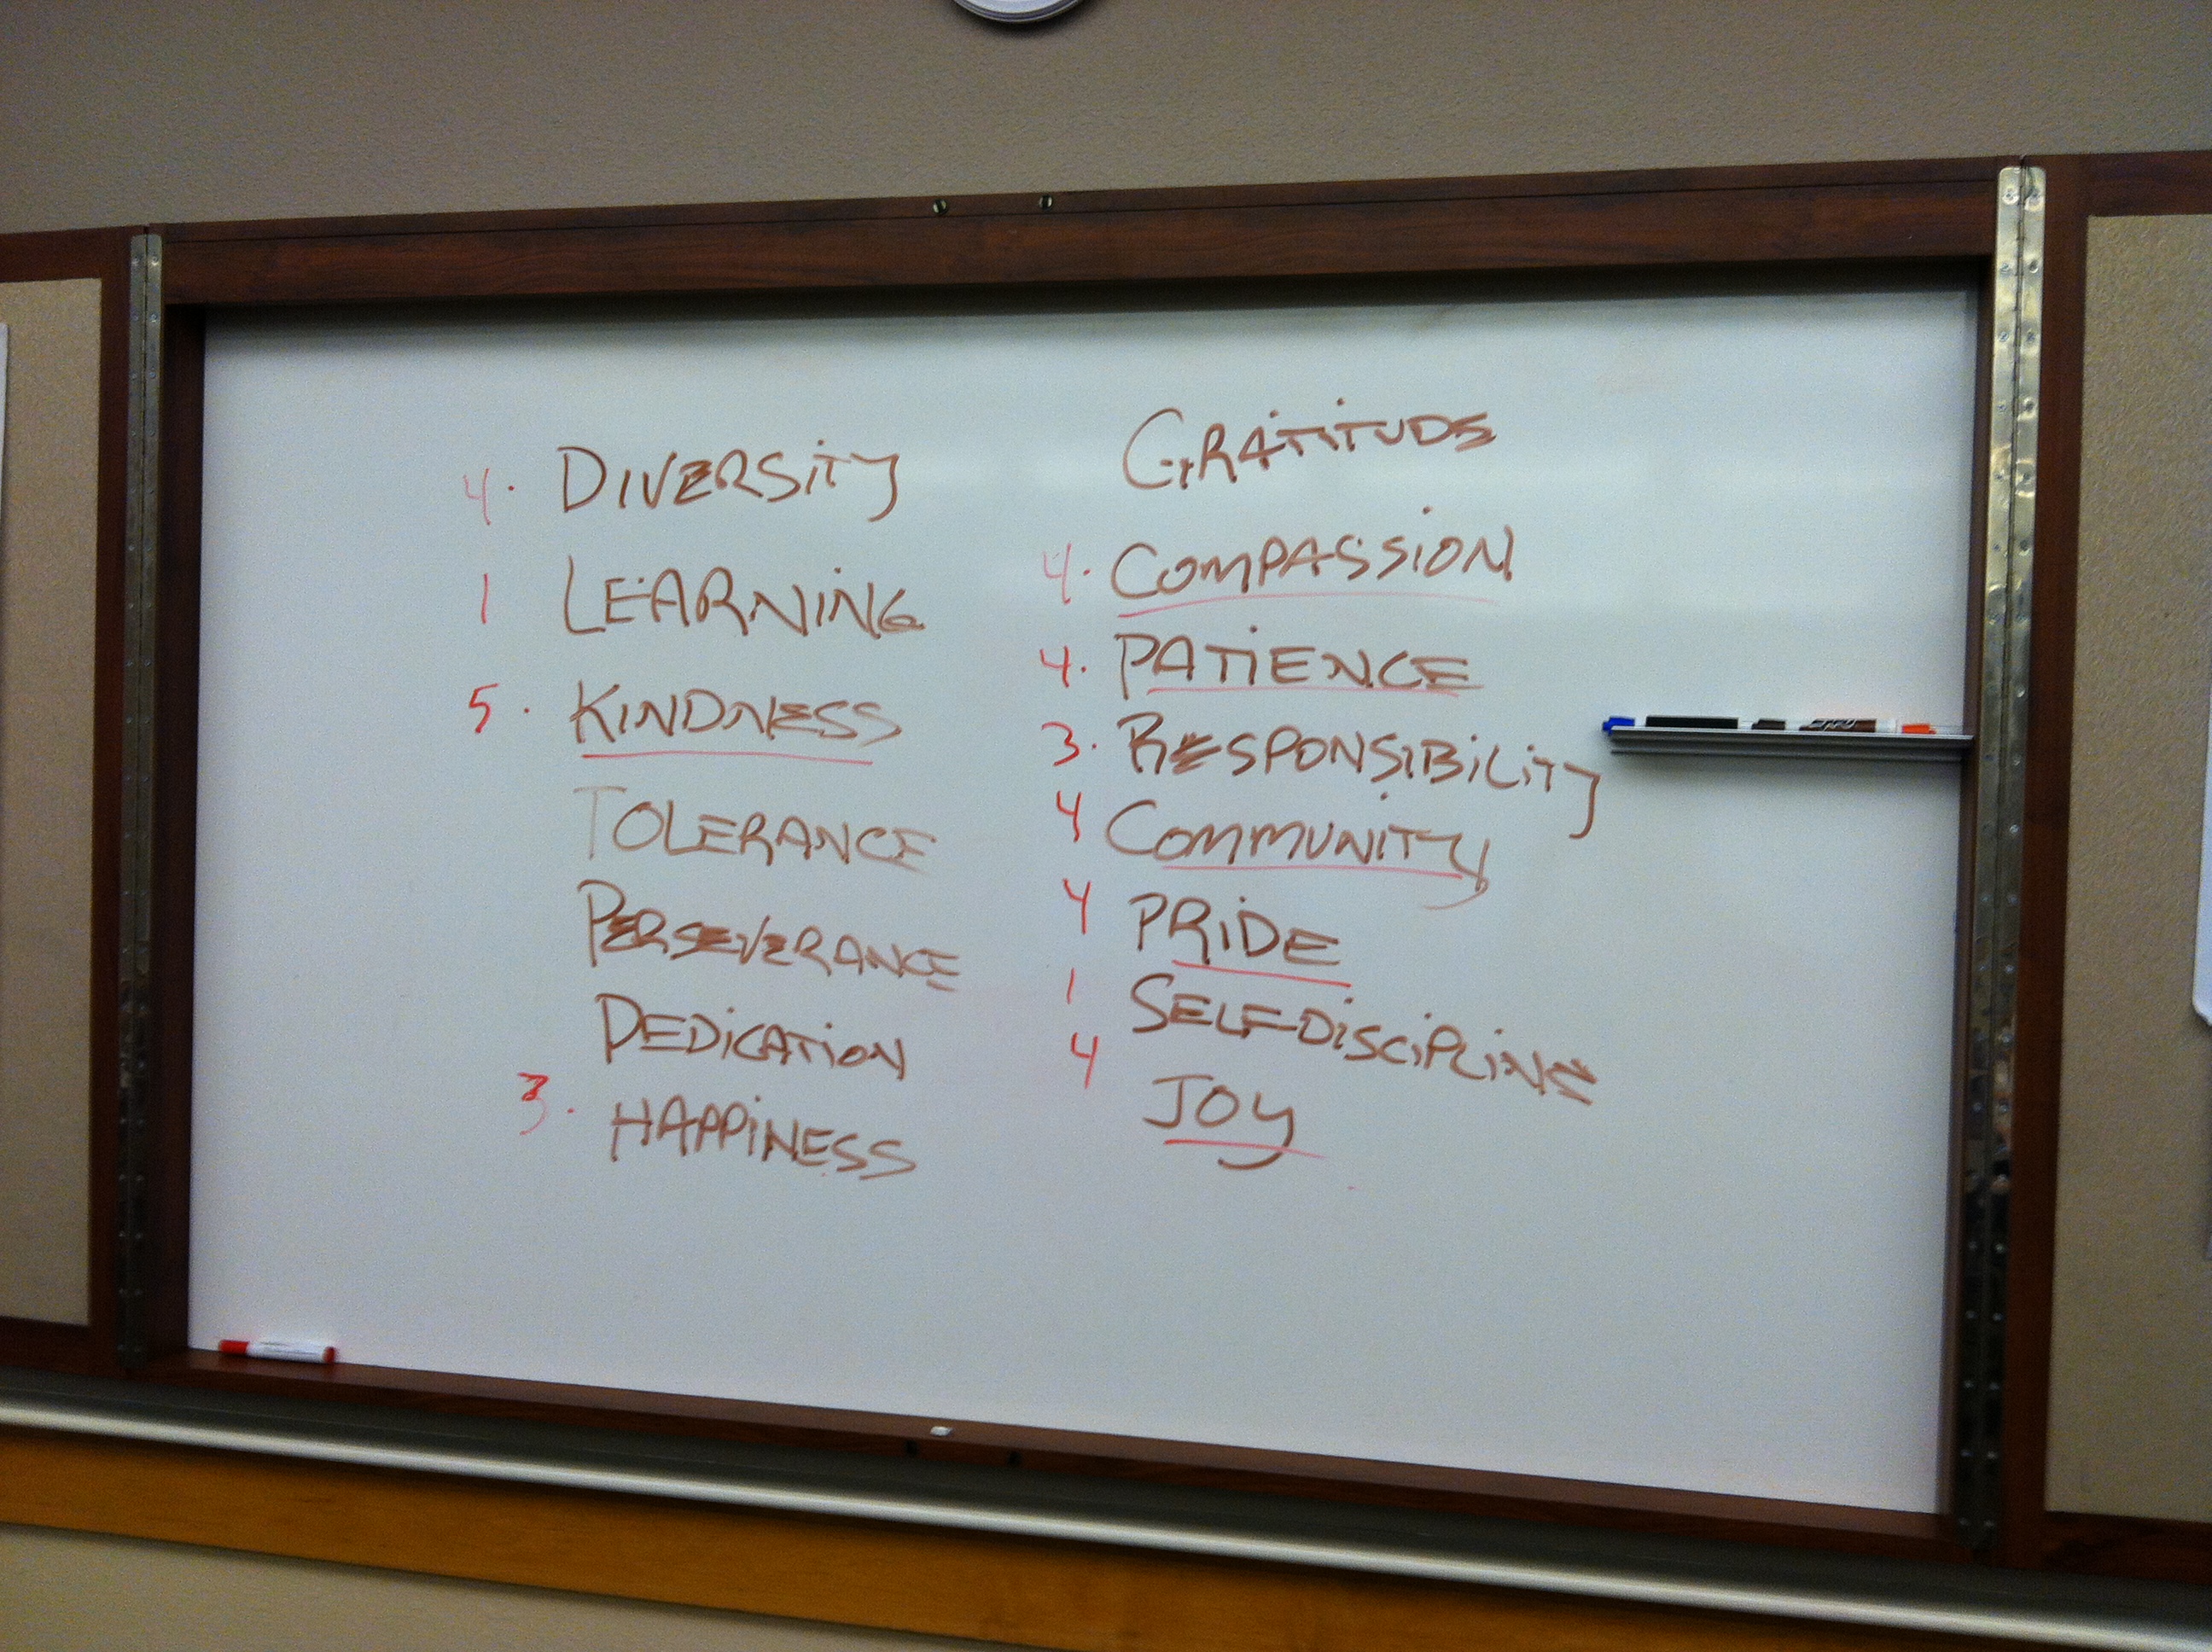 4. DIVERSITY
1 LEARNING
5. KINDNESS
TOLERANCE
PERSEVERANCE
DEDICATION
3. HAPPINESS
GRATITUDE
4. COMPASSION
4. PATIENCE
3. RESPONSIBILITY
4 COMMUNITY
4 PRIDE
1 SELF-DISCIPLINE
4 JOY